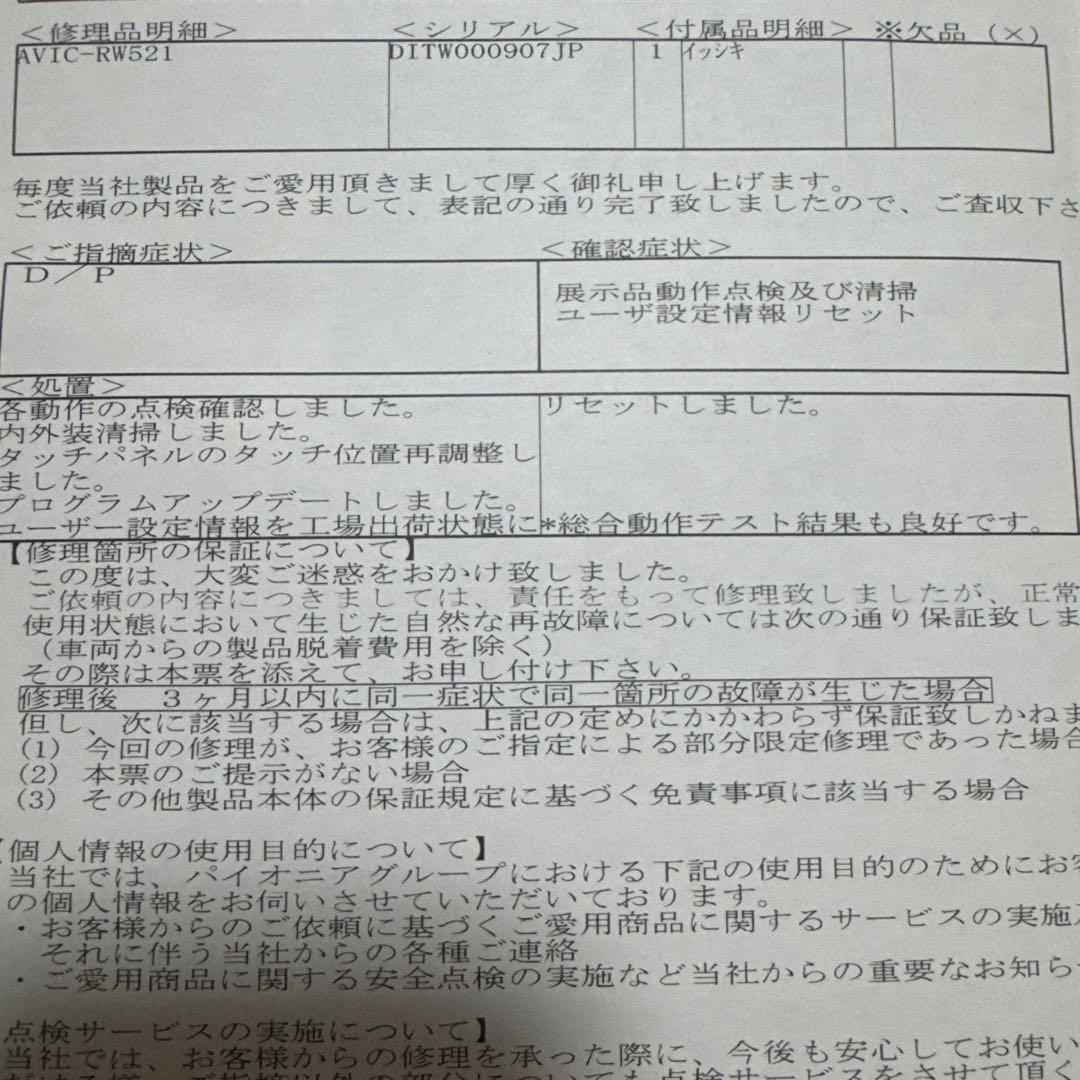 ＜修理品明細＞ ＜シリアル＞ ＜付属品明細＞ ※欠品 (×)
AVIC-RW521 DITW000907JP 1 イッシキ
毎度当社製品をご愛用頂きまして厚く御礼申し上げます。
ご依頼の内容につきまして、表記の通り完了致しましたので、ご査収下さ
＜ご指摘症状＞ ＜確認症状＞
D／P
展示品動作点検及び清掃
ユーザ設定情報リセット
＜処置＞
各動作の点検確認しました。 リセットしました。
内外装清掃しました。
タッチパネルのタッチ位置再調整し
ました。
プログラムアップデートしました。
ユーザー設定情報を工場出荷状態に *総合動作テスト結果も良好です。
【修理箇所の保証について】
この度は、大変ご迷惑をおかけ致しました。
ご依頼の内容につきましては、責任をもって修理致しましたが、正常
使用状態において生じた自然な再故障については次の通り保証致しま
（車両からの製品脱着費用を除く）
その際は本票を添えて、お申し付け下さい。
修理後 3ヶ月以内に同一症状で同一箇所の故障が生じた場合
但し、次に該当する場合は、上記の定めにかかわらず保証致しかねま
(1) 今回の修理が、お客様のご指定による部分限定修理であった場合
(2) 本票のご提示がない場合
(3) その他製品本体の保証規定に基づく免責事項に該当する場合
【個人情報の使用目的について】
当社では、パイオニアグループにおける下記の使用目的のためにお客
の個人情報をお伺いさせていただいております。
・お客様からのご依頼に基づくご愛用商品に関するサービスの実施
それに伴う当社からの各種ご連絡
・ご愛用商品に関する安全点検の実施など当社からの重要なお知ら
点検サービスの実施について】
当社では、お客様からの修理を承った際に、今後も安心してお使い